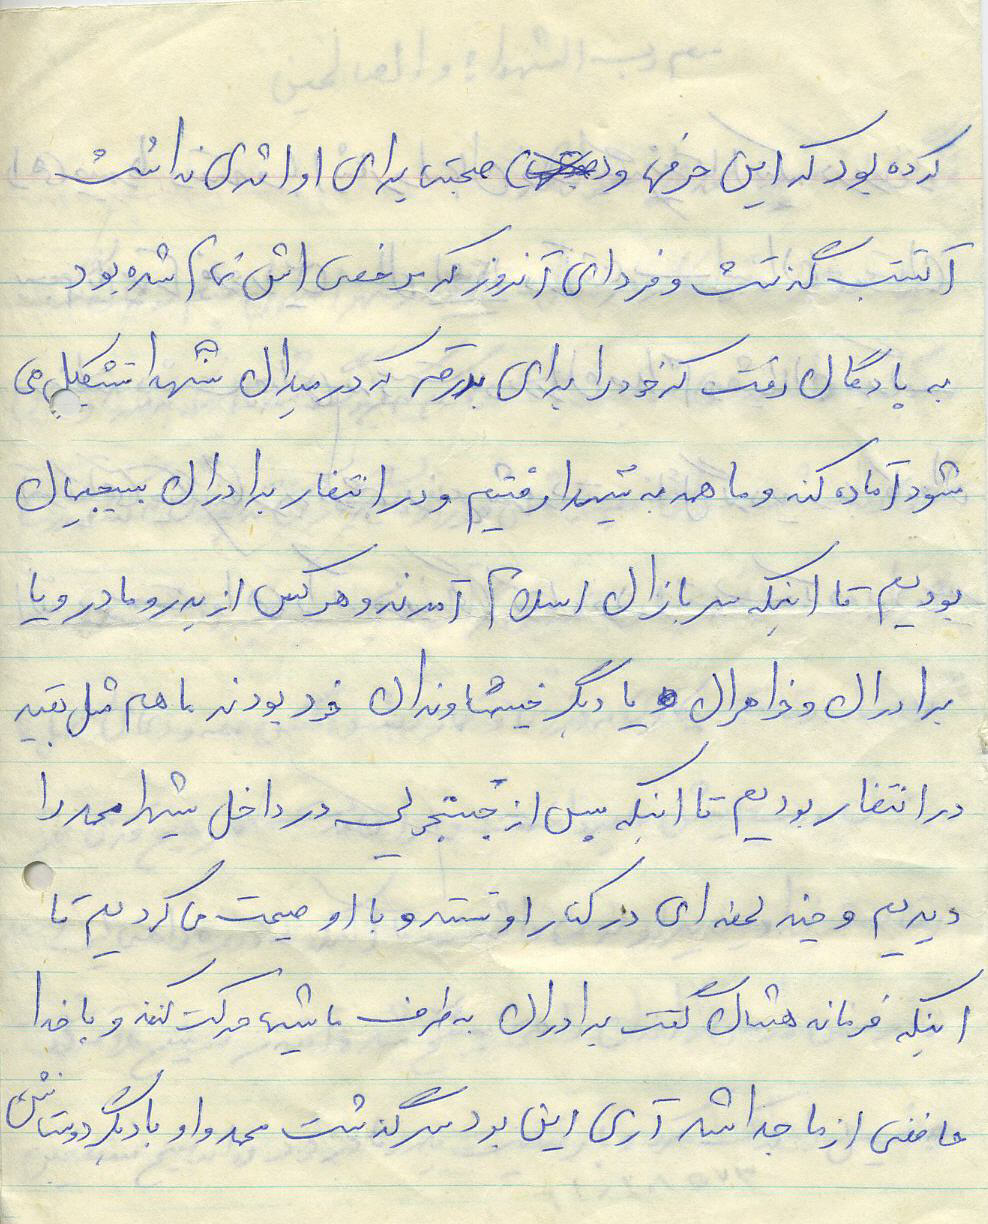 کرده بود که این حرفها و صحبتها برای او اثری نداشت
آنشب گذشت و فردای آنروز که مرخصی اش تمام شده بود
به پادگان رفت که خود را برای بدرقه که در میدان شهدا تشکیل می
شود آماده کند و ما همه به شهدا رفتیم و در انتظار برادران بسیجیمان
بودیم تا اینکه سربازان اسلام آمدند و هر کس از پدر و مادر و یا
برادران و خواهران و یا دیگر خویشاوندان خود بودند ما هم مثل بقیه
در انتظار بودیم تا اینکه پس از جستجویی در داخل شهدا محمد را
دیدیم و چند لحظه ای در کنار او نشسته و با او صحبت می کردیم تا
اینکه فرمانده هشان گفت برادران به طرف ماشینها حرکت کنند و با خدا
حافظی از ما جدا شد آری این بود سرگذشت محمد و او با دیگر دوستانش